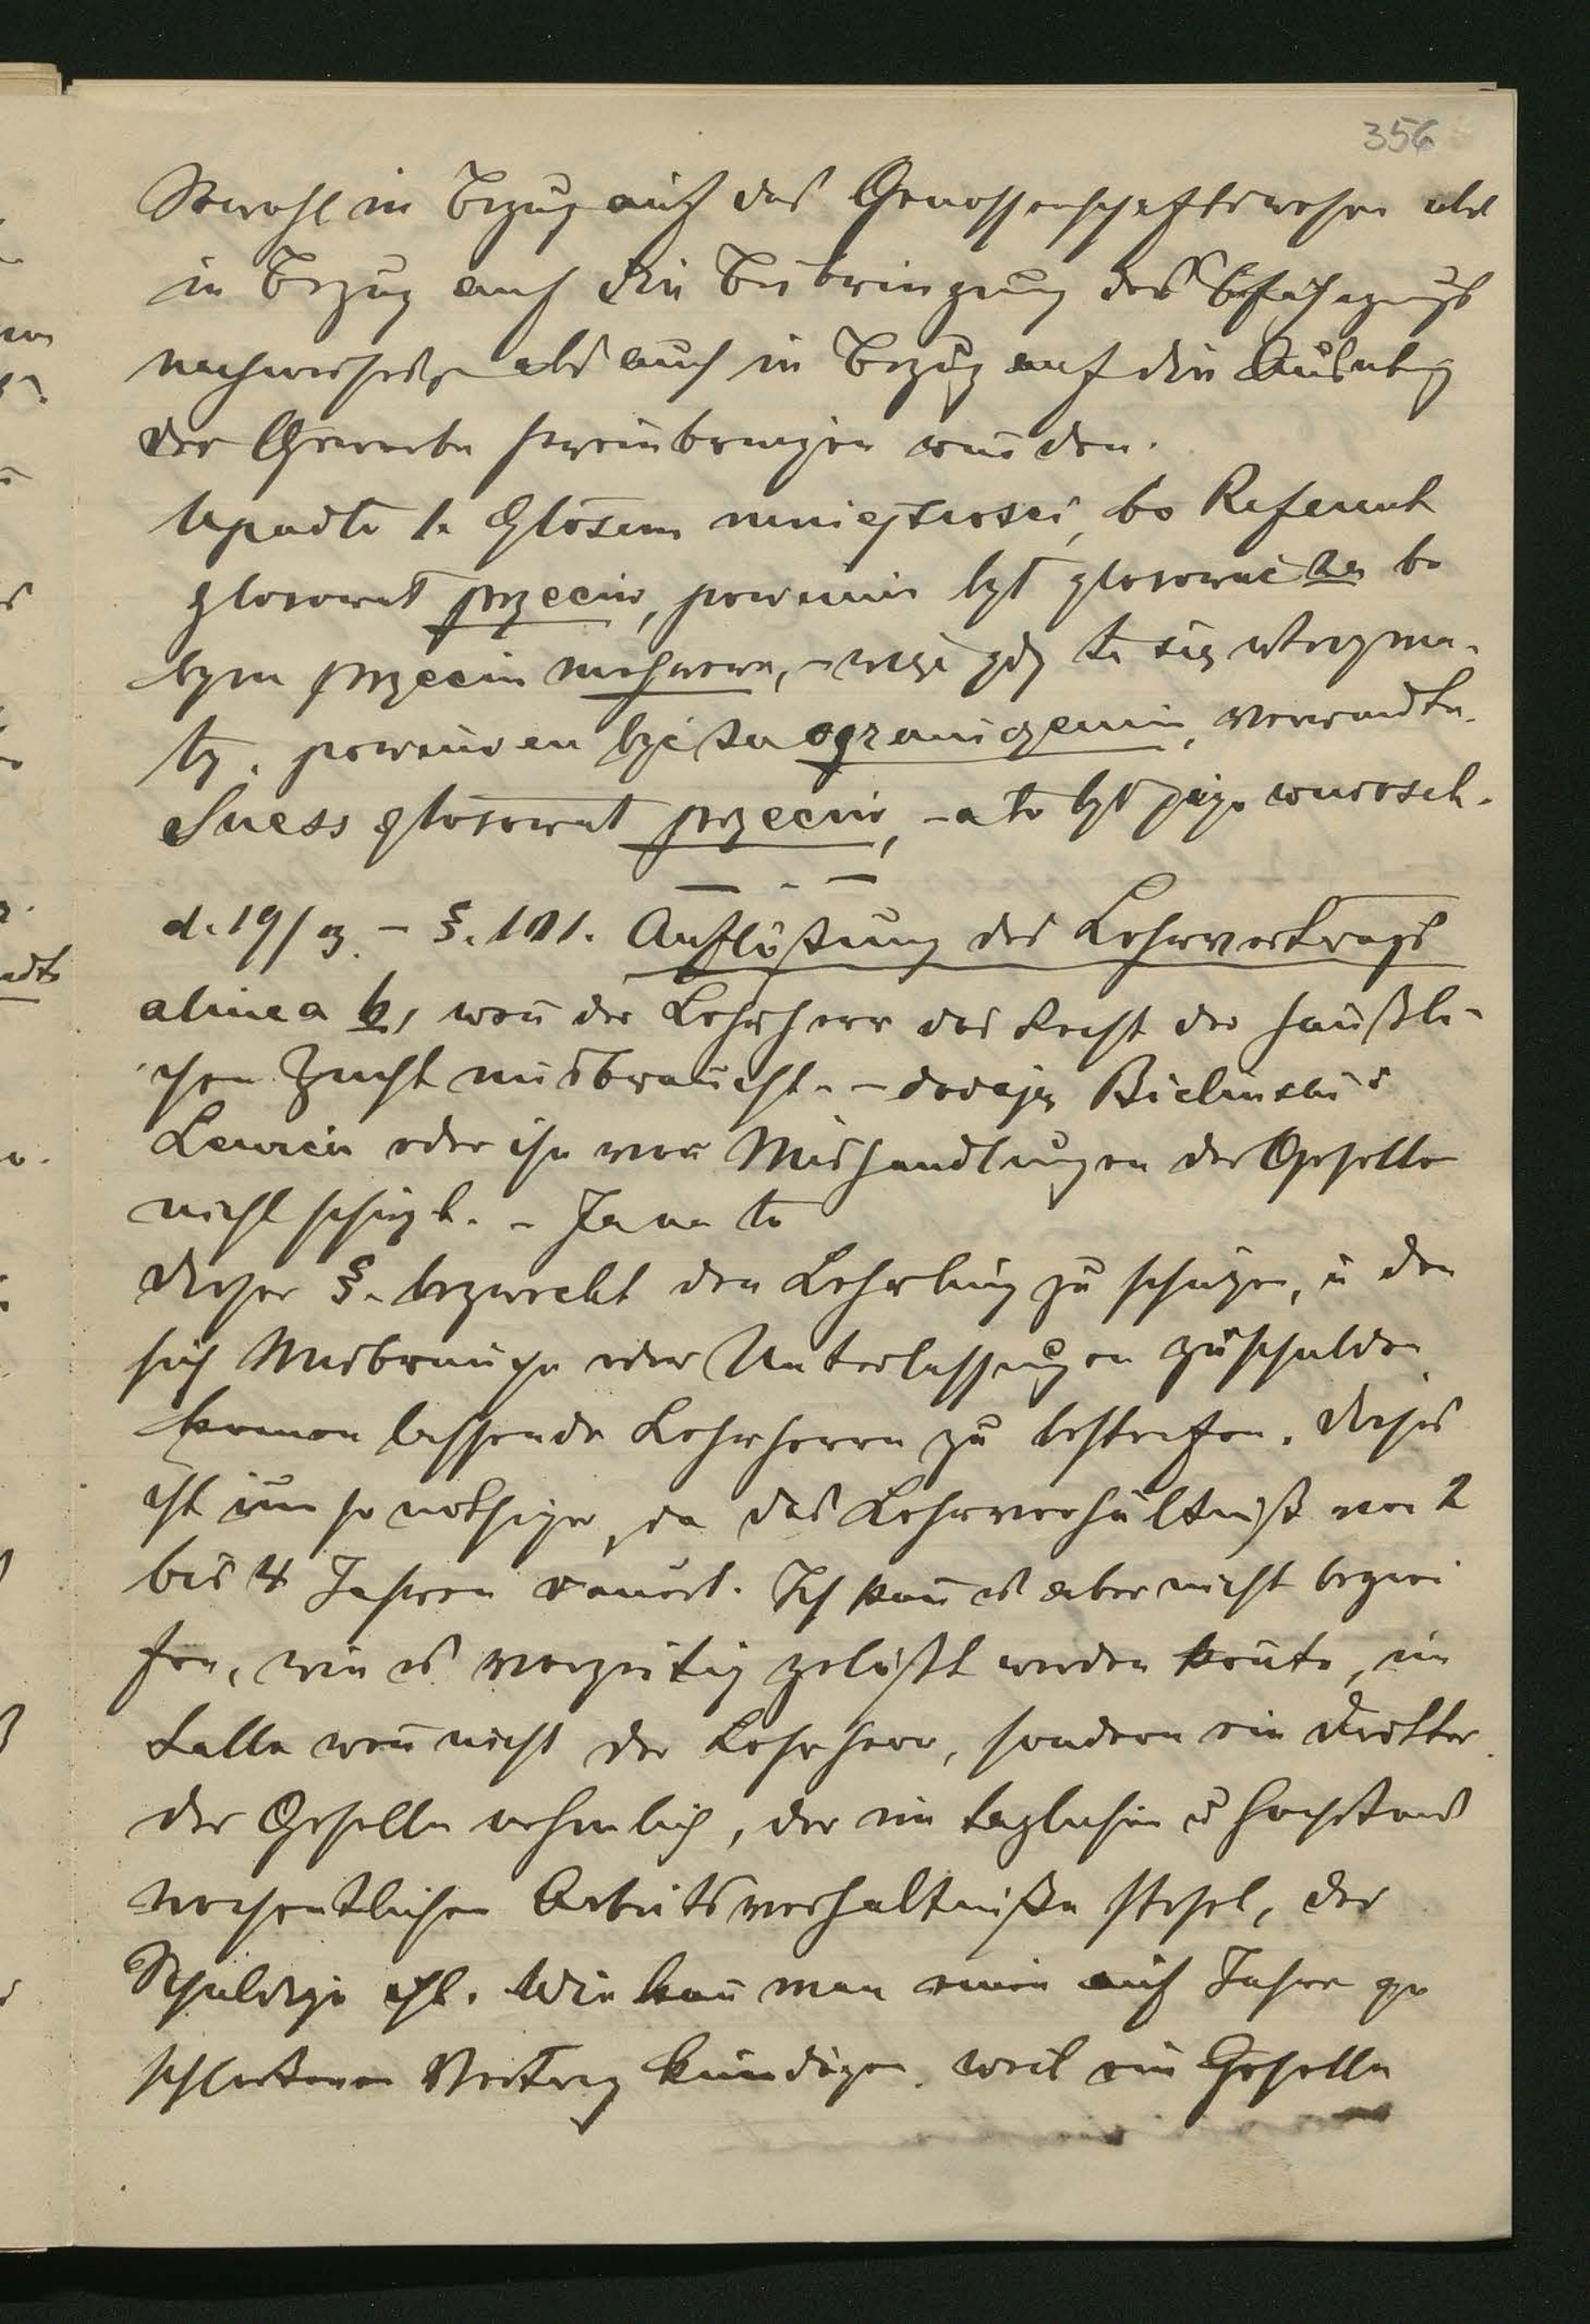 356
Sowohl in Bezug auf das Genossenschaftswesen als
in Bezug auf die Beibringung des Befähigungs
nachweises als auch in Bezug auf die Ausübg
der Gewerbe hereinbringen würden.
Upadło 1. głosem mniejszości, bo Referent
głosował przeciw, powinin był głosować za bo
bym przeciw , – więc gdy to się utrzyma-
ły. powinien być za ograniczenim,
Suess głosował przeciw, – a to był jego wniosek.
d. 19/3. – §. 101. Auflößung des Lehrvertrags
alinea b, weñ der Lehrherr das Recht der häußli-
chen Zucht misbraucht. – dodają Bielinski i
oder ihn von Mishandlungen der Geselle
nicht schüzt. – Ja na to
dieser §. bezweckt den Lehrling zu schüzen, u den
sich Misbräuche oder Unterlassungen zuschulden
komen lassende Lehrherrn zu bestrafen. Dieses
ist um so nöthiger, da das Lehrverhältniß von 2
bis 4 Jahren dauert. Ich kañ es aber nicht begrei
fen, wie es vorzeitig gelößt werden köñte, im
Falle weñ nicht der Lehrherr, sondern ein Dritter
der Geselle nehmlich, der im täglichen u höchstens
wochentlichen Arbeitsverhältniße stehet, der
Schuldige ist. Wie kañ man einen auf Jahre ge
schloßenen Vertrag kündigen, weil ein Geselle